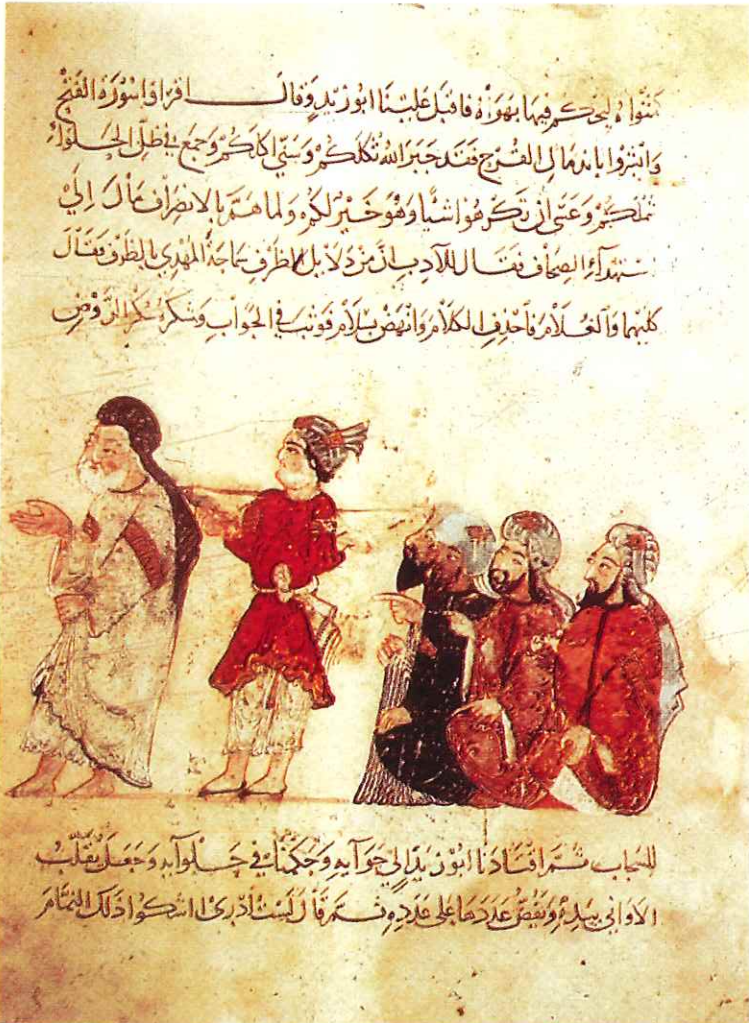 مثواه ليحكم فيها بهواه فاقبل علينا ابو زيد وقال اقراوا سورة الفتح
وابشروا باندمال القرح فقد جبر الله ثكلكم وسنى اكلكم وجمع في ظل الحلواء
شملكم وعسى ان تكرهوا شيا وهو خير لكم ولما هم بالانصراف مال الي
استهداء الصحاف فقال للآدب ان من دلايل الظرف سماحة المهدي بالظرف فقال
كليهما والغلام فاحذف الكلام وانهض بسلام فوثب في الجواب وشكره شكر الروض
للسحاب ثم اقتادنا ابو زيد الي حوآيه وحكمنا في حلوآيه وجعل يقلب
الاواني بيده ويفض عددها على عدده ثم قال لست ادري ااشكوا ذلك النمام